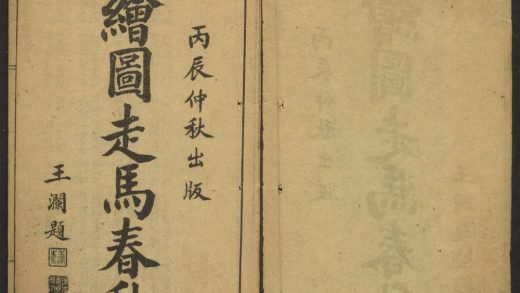 丙辰仲秋出版
繪圖走馬春秋
王瀾題